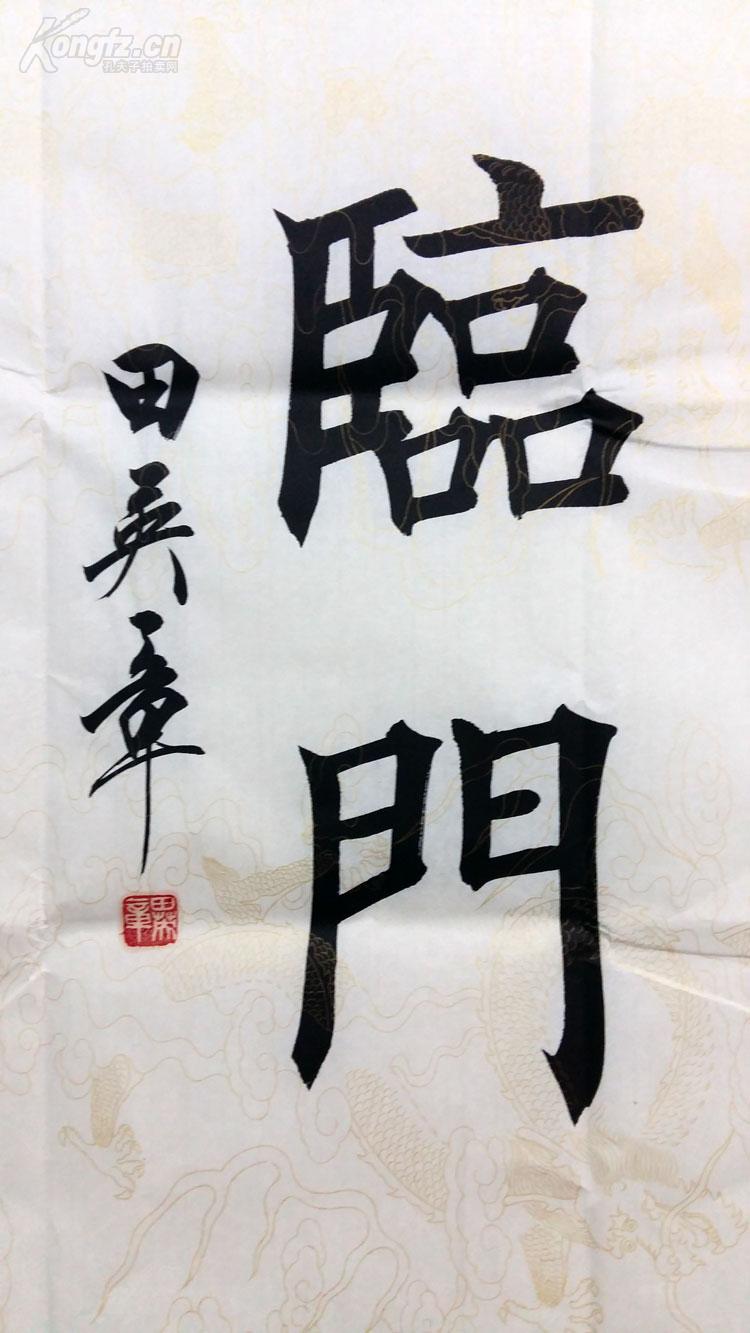 Kongfz.cn
孔夫子拍卖网
臨門
田英章
田英章